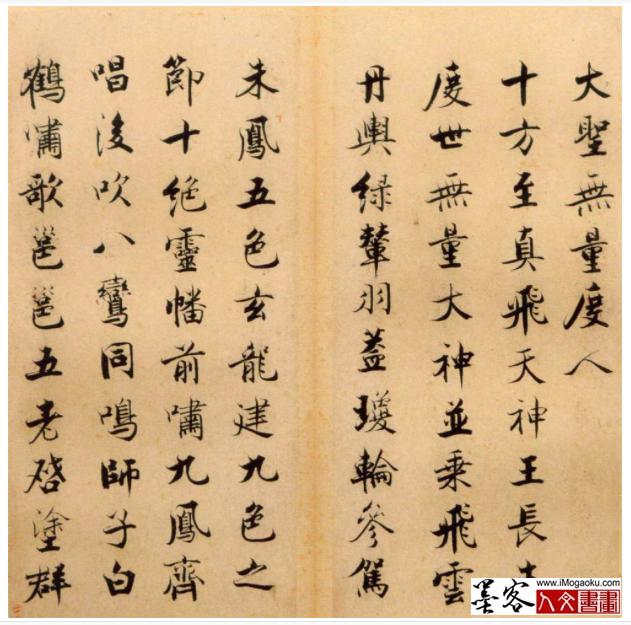 大聖無量度人
十方至真飛天神王長
度世無量大神並乘飛雲
丹輿緑輦羽蓋瓊輪參駕
朱鳳五色玄龍建九色之
節十絕靈幡前嘯九鳳齊
唱後吹八鸞同鳴師子白
鶴嘯歌邕邕五老啓塗群
墨客
www.iMogaoku.com
人文書畫